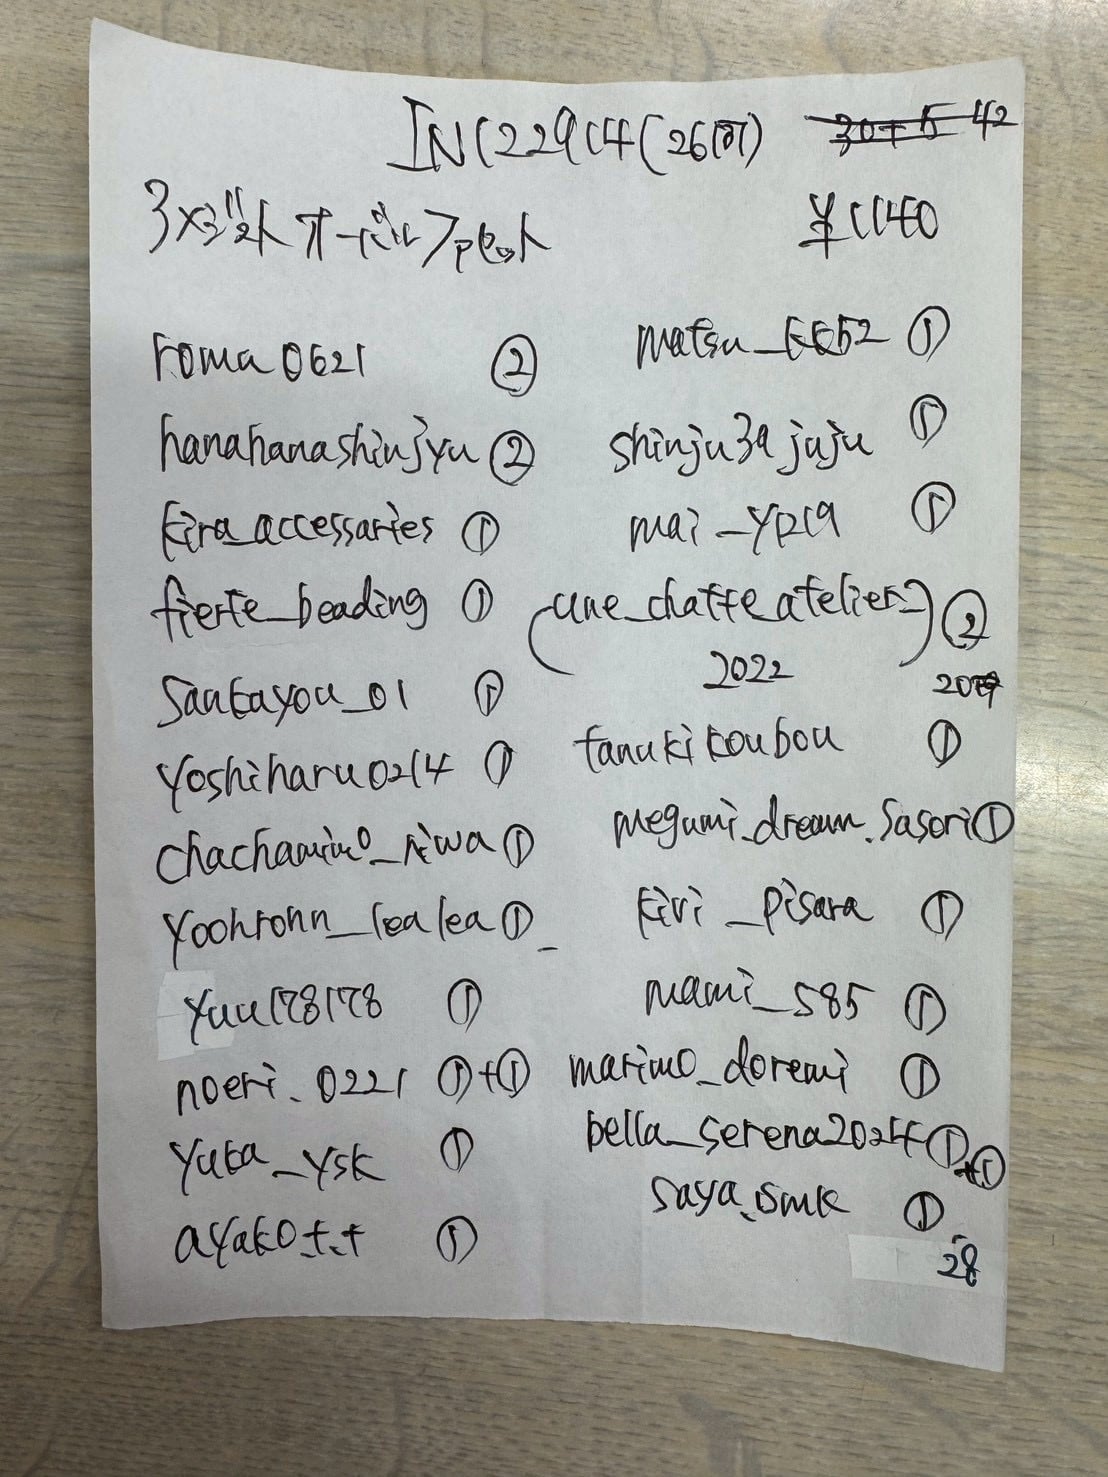 IN122914(26的) 30+5 42
3×3ジスト オーバルファセット ¥1140
roma0621 ②
hanahanashinjyu ②
kira_accessaries ①
fierte_beading ①
sankayou_01 ①
yoshiharu0214 ①
chachamimo_niwa ①
yoohrohn_lealea ①
yuu178178 ①
noeri_0221 ①+①
yuka_ysk ①
ayako_t.t ①
matsu_kk52 ①
shinju39juju ①
mai_yp19 ①
(une_chatte_atelier_) ②
2022
tanukikoubou ①
megumi_dream.sasori ①
kivi_pisara ①
mami_585 ①
marimo_doremi ①
bella_serena2024 ①+①
saya.smk ①
28